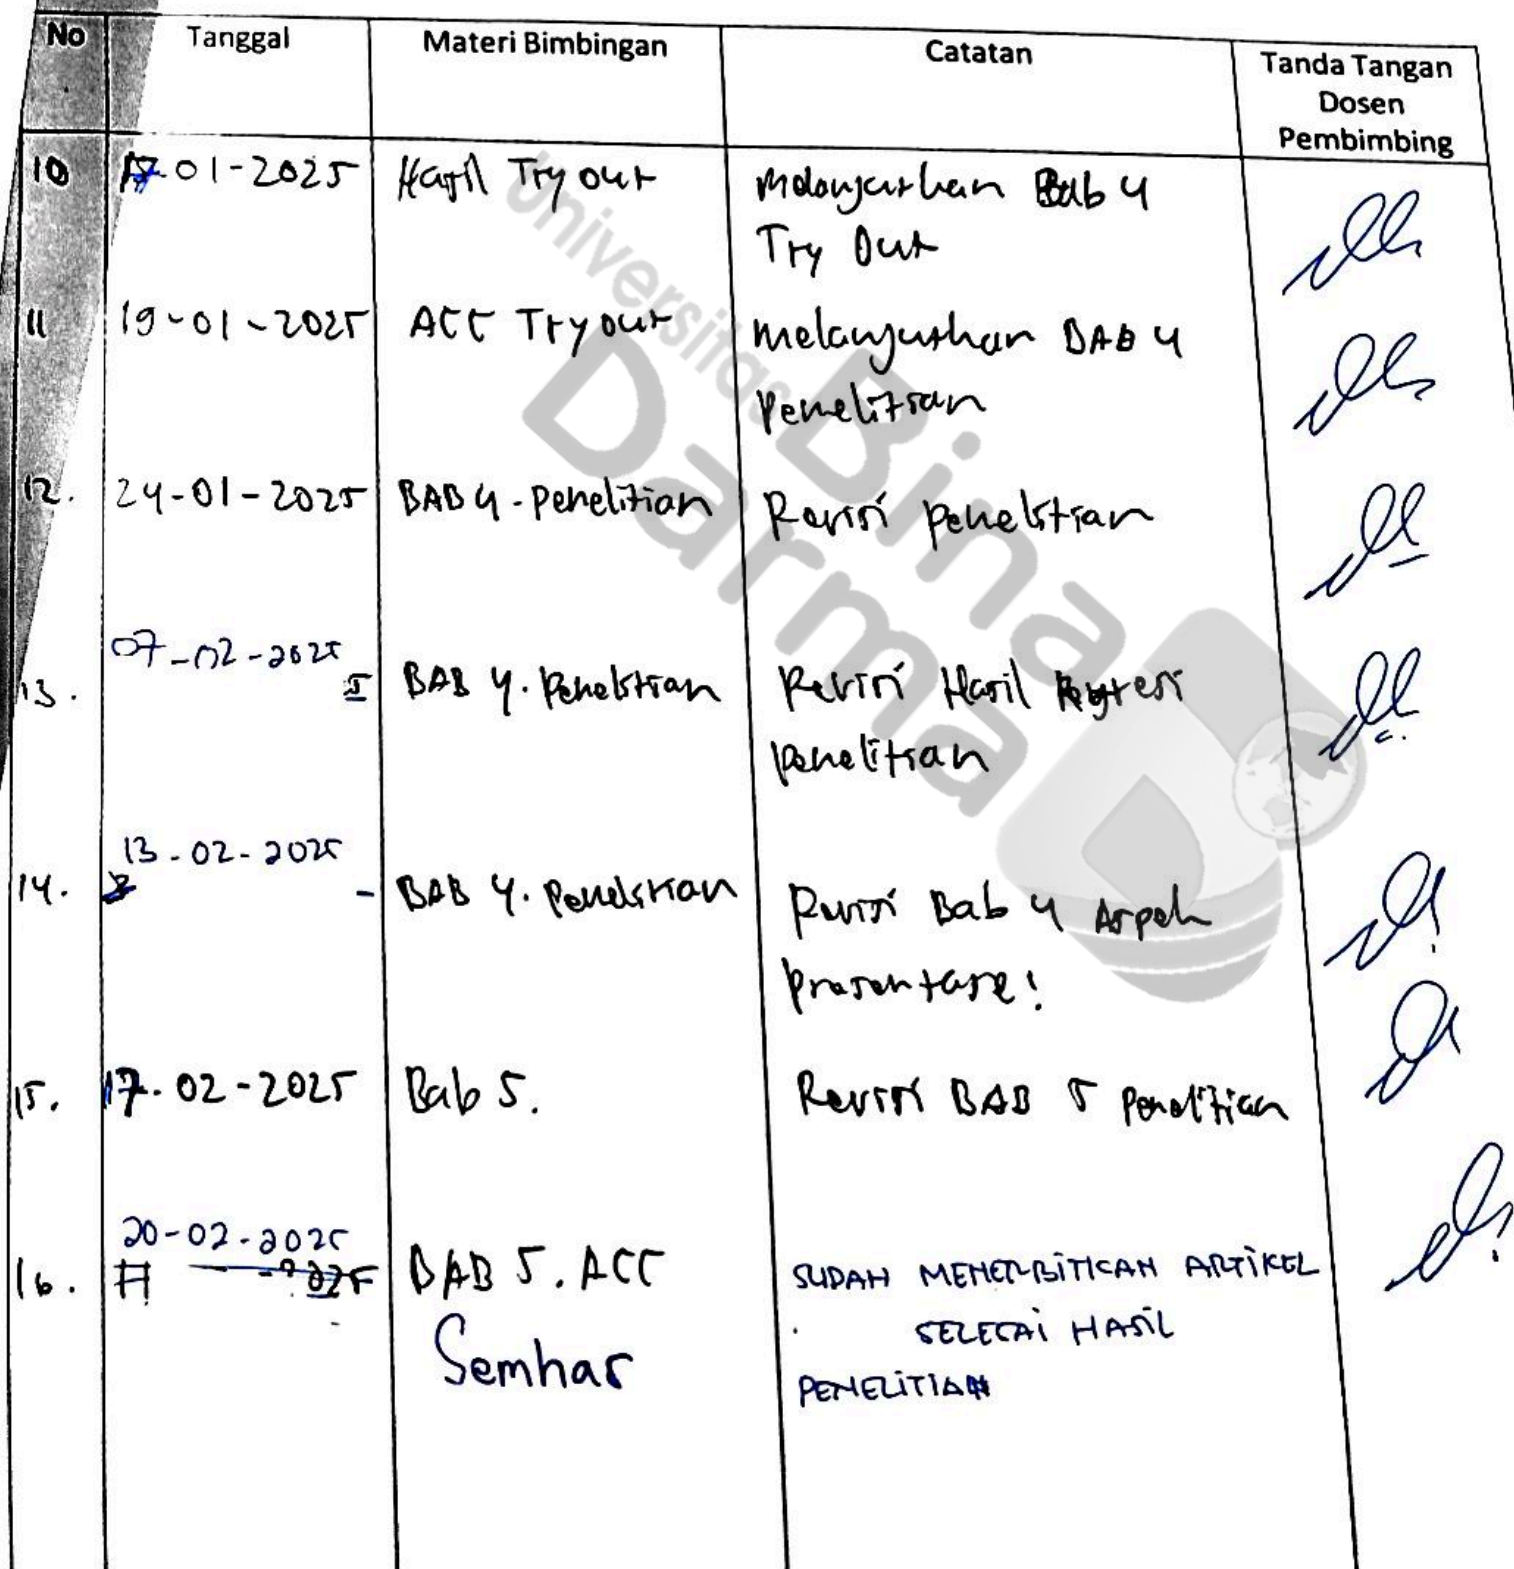 No Tanggal Materi Bimbingan Catatan Tanda Tangan
Dosen
Pembimbing
10 17-01-2025 Hasil Try out Melanjutkan Bab 4
Try Out
11 19-01-2025 ACC Try out Melanjutkan BAB 4
Penelitian
12. 24-01-2025 BAB 4 - Penelitian Revisi Penelitian
07-02-2025
13. BAB 4. Penelitian Revisi Hasil Regresi
Penelitian
13-02-2025
14. BAB 4. Penelitian Revisi Bab 4 Aspek
Prasentase!
15. 17-02-2025 Bab 5. Revisi BAB 5 Penelitian
20-02-2025
16. BAB 5. ACC SUDAH MENERBITKAN ARTIKEL
Semhas SELESAI HASIL
PENELITIAN
Universitas
Bina
Darma